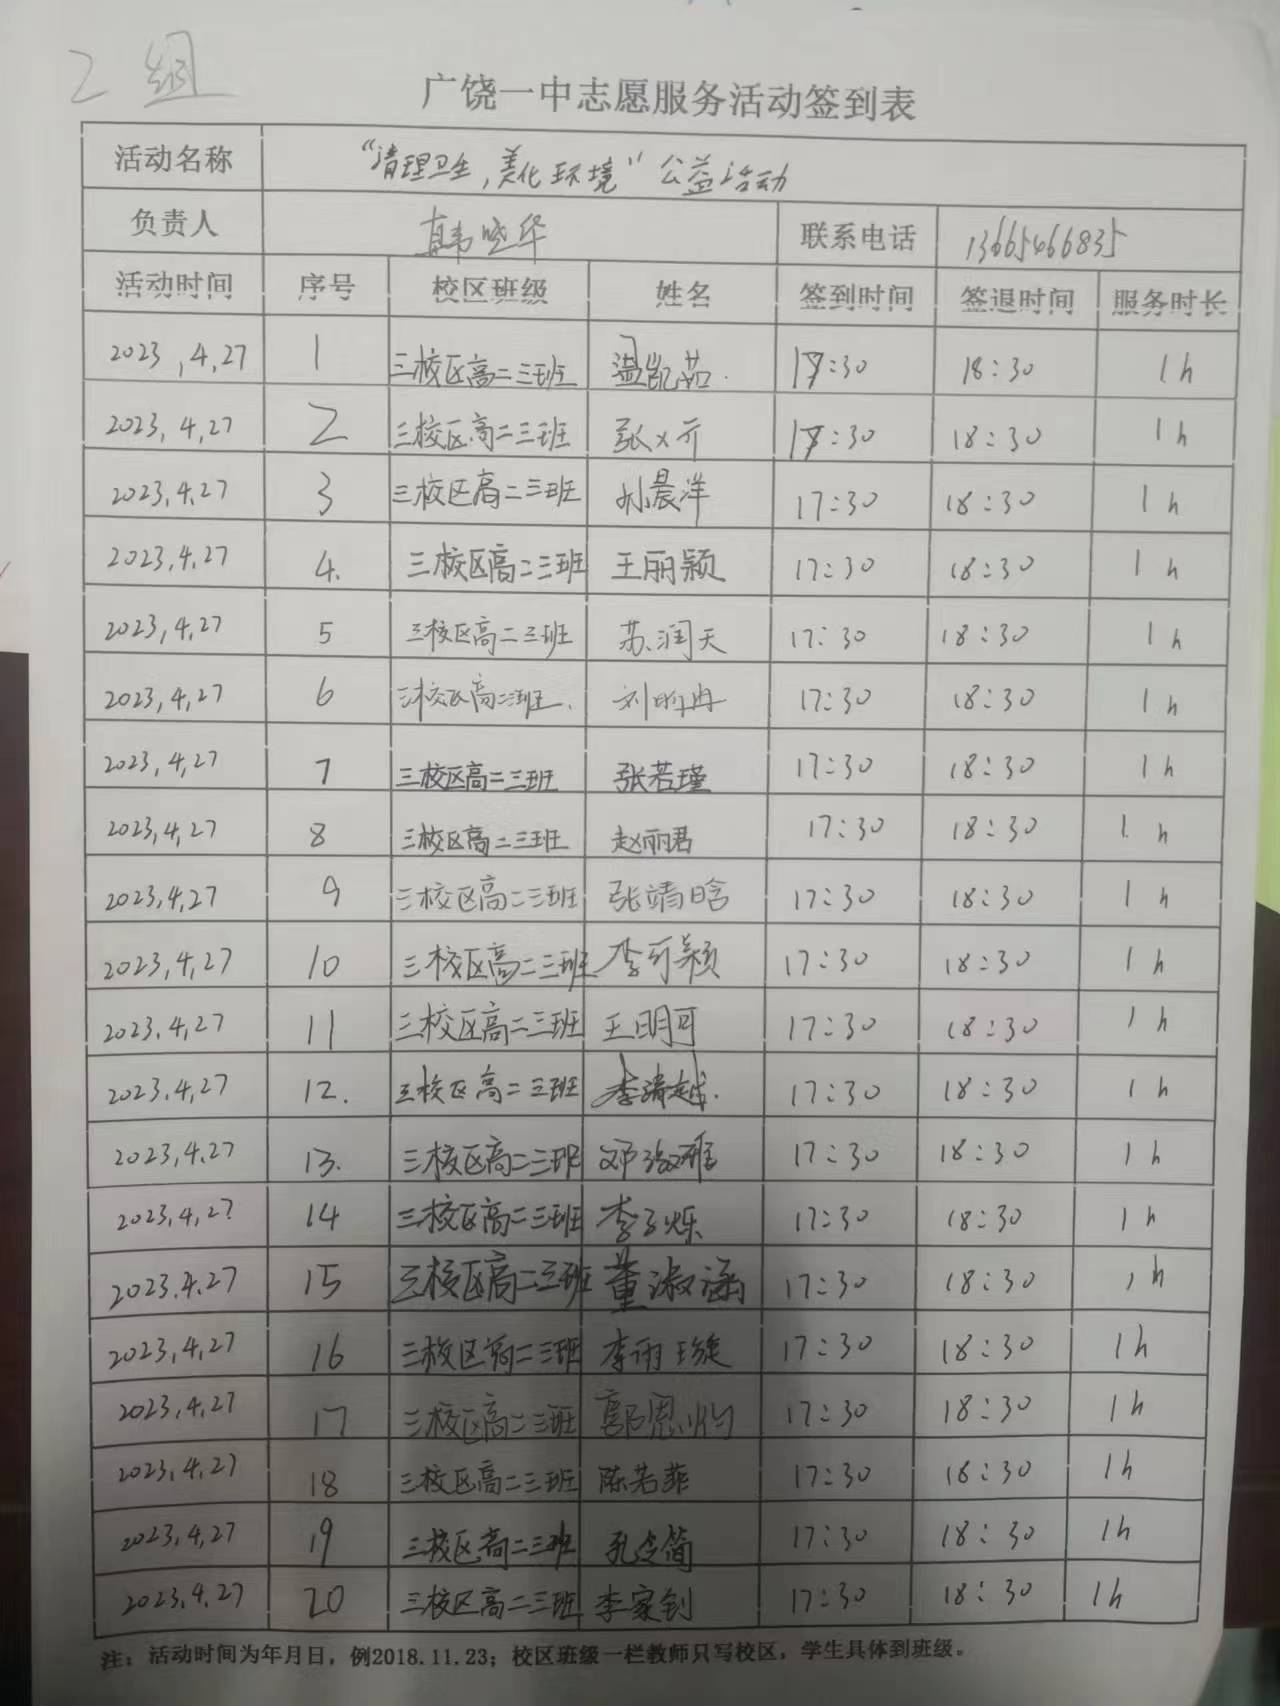 2组
广饶一中志愿服务活动签到表
活动名称 “清理卫生,美化环境”公益活动
负责人 韩晓华 联系电话 13665466835
活动时间 序号 校区班级 姓名 签到时间 签退时间 服务时长
2023,4,27 1 三校区高二三班 温凯茹 17:30 18:30 1h
2023,4,27 2 三校区高二三班 张义亓 17:30 18:30 1h
2023,4,27 3 三校区高二三班 孙晨洋 17:30 18:30 1h
2023,4,27 4. 三校区高二三班 王丽颖 17:30 18:30 1h
2023,4,27 5 三校区高二三班 苏润天 17:30 18:30 1h
2023,4,27 6 三校区高二三班. 刘昕冉 17:30 18:30 1h
2023,4,27 7 三校区高二三班 张若瑾 17:30 18:30 1h
2023,4,27 8 三校区高二三班 赵丽君 17:30 18:30 1h
2023,4,27 9 三校区高二三班 张靖晗 17:30 18:30 1h
2023,4,27 10 三校区高二三班 李可颖 17:30 18:30 1h
2023.4,27 11 三校区高二三班 王明可 17:30 18:30 1h
2023.4,27 12. 三校区高二三班 李清越. 17:30 18:30 1h
2023,4,27 13. 三校区高二三班 邓淑雅 17:30 18:30 1h
2023,4,27 14 三校区高二三班 李子烁 17:30 18:30 1h
2023.4.27 15 三校区高二三班 董淑涵 17:30 18:30 1h
2023,4,27 16 三校区高二三班 李雨璇 17:30 18:30 1h
2023,4,27 17 三校区高二三班 郭恩灼 17:30 18:30 1h
2023,4,27 18 三校区高二三班 陈若菲 17:30 18:30 1h
2023,4,27 19 三校区高二三班 孔令简 17:30 18:30 1h
2023,4,27 20 三校区高二三班 李家钊 17:30 18:30 1h
注：活动时间为年月日，例2018.11.23；校区班级一栏教师只写校区，学生具体到班级。